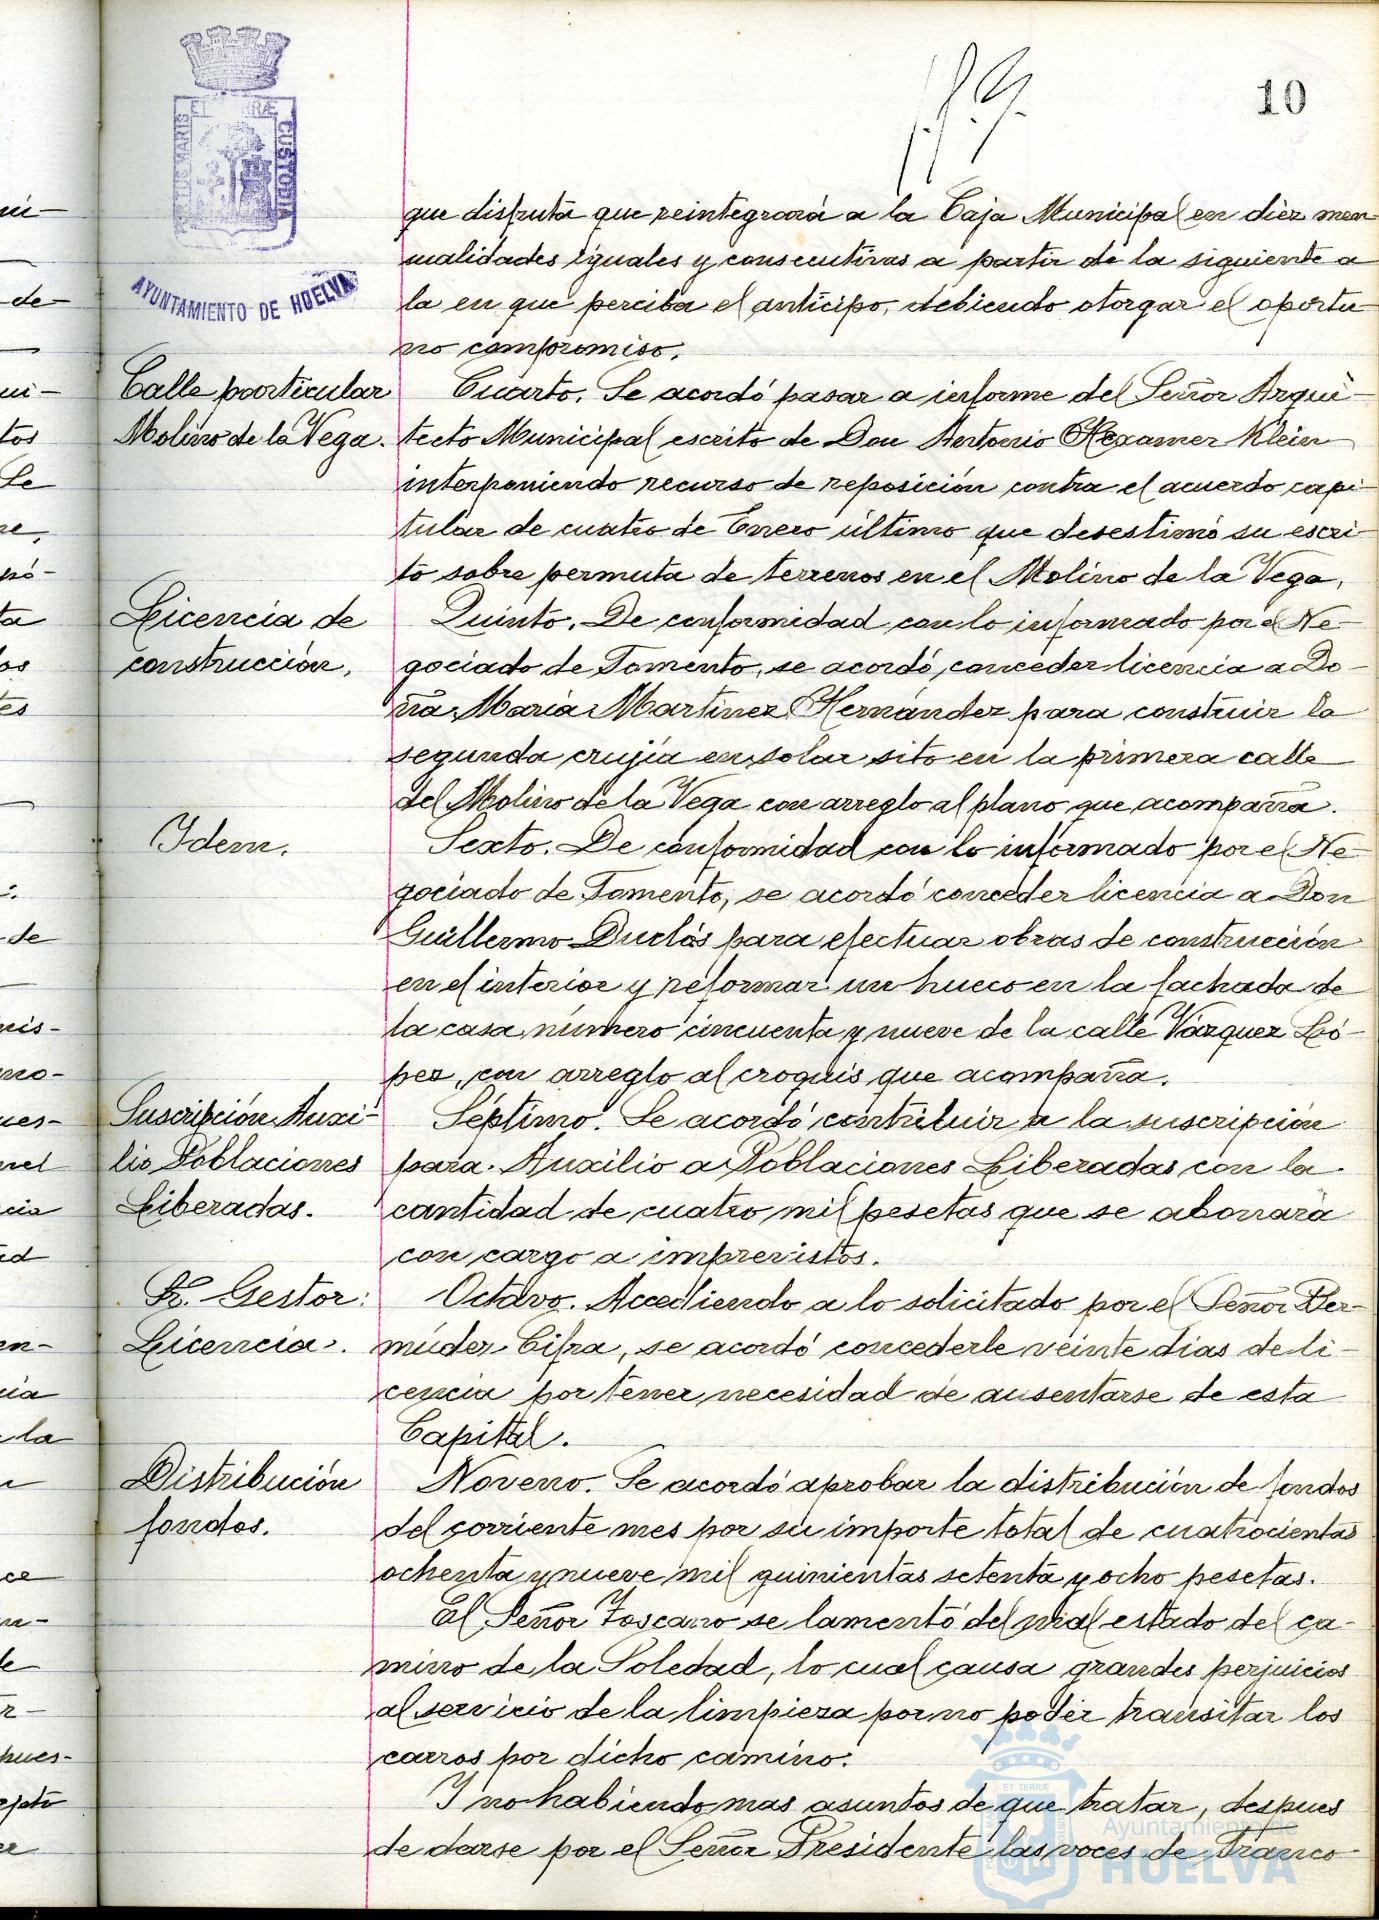 10
ET TERRÆ
PORTUS MARIS
CUSTODIA
AYUNTAMIENTO DE HUELVA
que disfruta que reintegrará a la Caja Municipal en diez men-
sualidades iguales y consecutivas a partir de la siguiente a
la en que perciba el anticipo, debiendo otorgar el oportu-
no compromiso.
Calle particular
Molino de la Vega.
Cuarto. Se acordó pasar a informe del Señor Arqui-
tecto Municipal escrito de Don Antonio Hexamer Klein
interponiendo recurso de reposición contra el acuerdo capi-
tular de cuatro de Enero último que desestimó su escri-
to sobre permuta de terrenos en el Molino de la Vega.
Licencia de
construcción.
Quinto. De conformidad con lo informado por el Ne-
gociado de Fomento, se acordó conceder licencia a Do-
ña María Martínez Hernández para construir la
segunda crujía en solar sito en la primera calle
del Molino de la Vega con arreglo al plano que acompaña.
Idem.
Sexto. De conformidad con lo informado por el Ne-
gociado de Fomento, se acordó conceder licencia a Don
Guillermo Duclós para efectuar obras de construcción
en el interior y reformar un hueco en la fachada de
la casa número cincuenta y nueve de la calle Vázquez Ló-
pez, con arreglo al croquis que acompaña.
Suscripción Auxi-
lio Poblaciones
Liberadas.
Séptimo. Se acordó contribuir a la suscripción
para Auxilio a Poblaciones Liberadas con la
cantidad de cuatro mil pesetas que se abonará
con cargo a imprevistos.
Sr. Gestor:
Licencia.
Octavo. Accediendo a lo solicitado por el Señor Ber-
múdez Cifra, se acordó concederle veinte días de li-
cencia por tener necesidad de ausentarse de esta
Capital.
Distribución
fondos.
Noveno. Se acordó aprobar la distribución de fondos
del corriente mes por su importe total de cuatrocientas
ochenta y nueve mil quinientas setenta y ocho pesetas.
El Señor Toscano se lamentó del mal estado del ca-
mino de la Soledad, lo cual causa grandes perjuicios
al servicio de la limpieza por no poder transitar los
carros por dicho camino.
Y no habiendo mas asuntos de que tratar, despues
de darse por el Señor Presidente las voces de Franco-
Ayuntamiento de
HUELVA